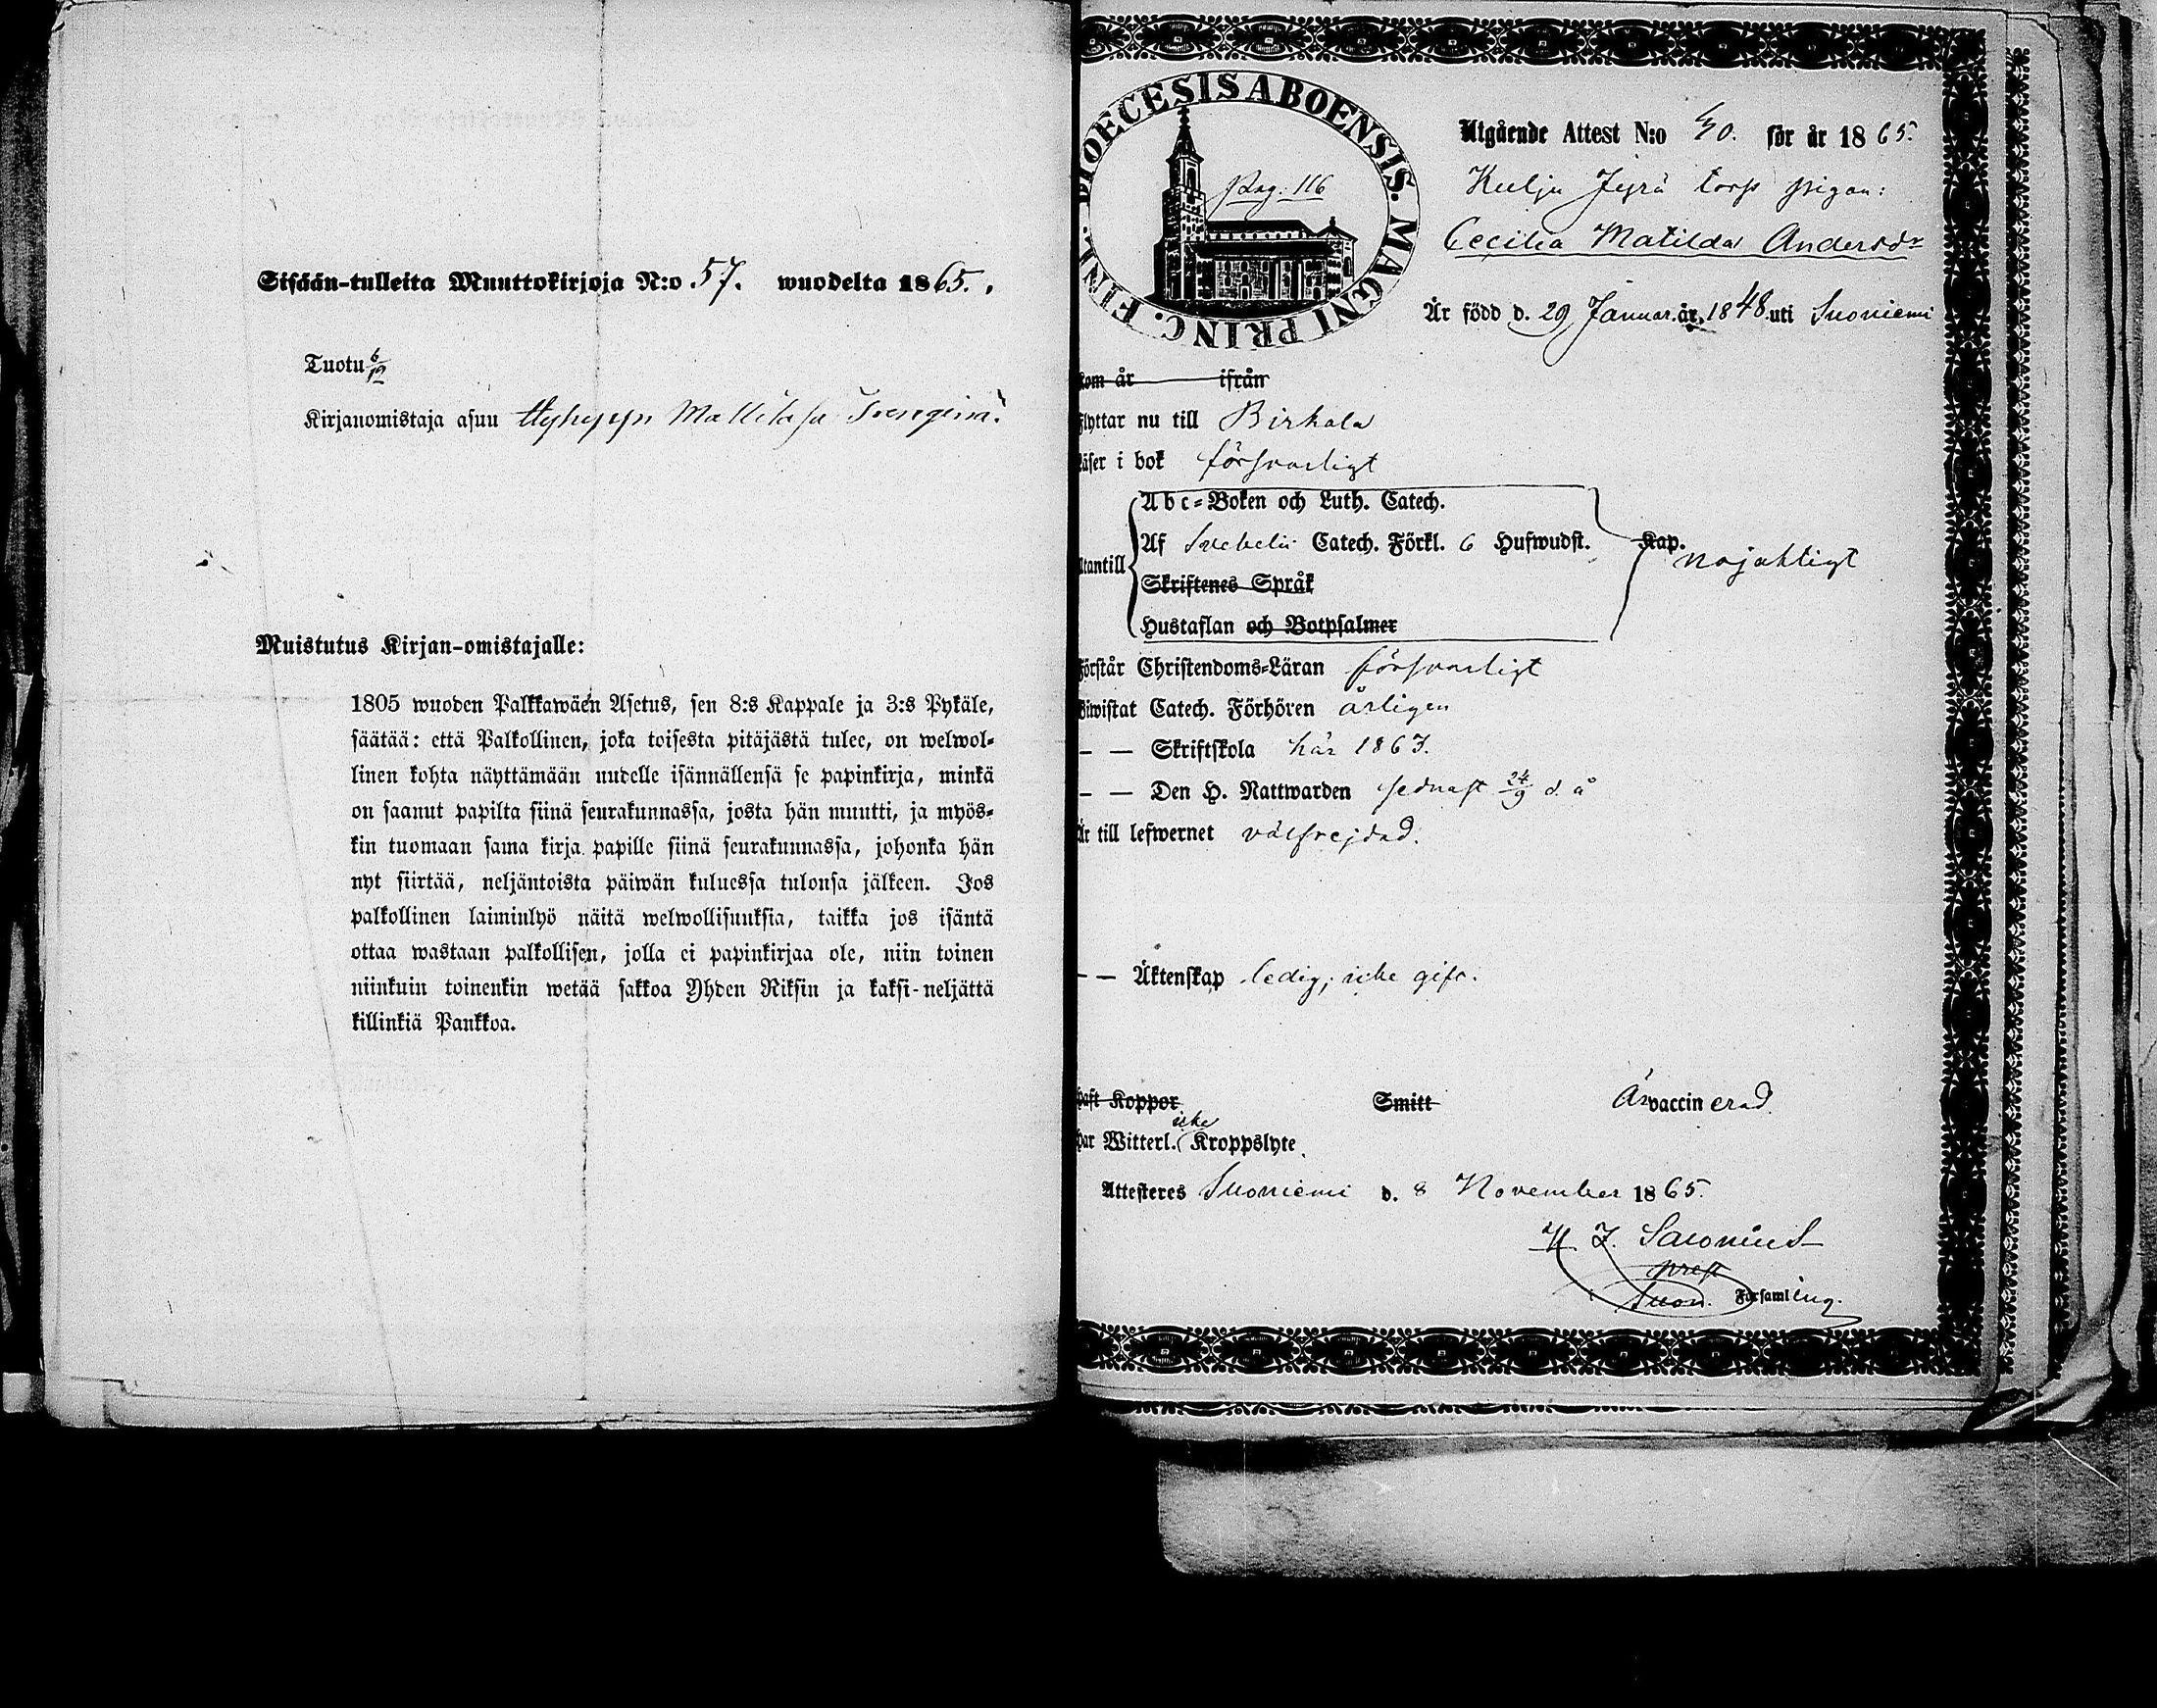 Sisään-tulleita Muuttokirjoja N:o 57. wuodelta 1865.
Tuotu 6/12
Kirjanomistaja asuu Matti renginä.
Muistutus Kirjan-omistajalle:
1805 wuoden Palkkawäen Asetus, sen 8:s Kappale ja 3:s Pykäle,
säätää: että Palkollinen, joka toisesta pitäjästä tulee, on welwol-
linen kohta näyttämään uudelle isännällensä se papinkirja, minkä
on saanut papilta siinä seurakunnassa, josta hän muutti, ja myös-
kin tuomaan sama kirja papille siinä seurakunnassa, johonka hän
nyt siirtää, neljäntoista päiwän kuluessa tulonsa jälkeen. Jos
palkollinen laiminlyö näitä welwollisuuksia, taikka jos isäntä
ottaa wastaan palkollisen, jolla ei papinkirjaa ole, niin toinen
niinkuin toinenkin wetää sakkoa Yhden Riksin ja kaksi-neljättä
killinkiä Pankkoa.
DIOECESIS ABOENSIS. MAGNI PRINC. FINL.
Pag: 116
Utgående Attest N:o 40. för år 1865.
Kulju Jyrä torp pigan:
Cecilia Matilda Andersdr
Är född d. 29 Januar. år. 1848 uti Suoniemi
kom år ifrån
flyttar nu till Birkala
läser i bok försvarligt
Abc-Boken och Luth. Catech.
Af Svebelii Catech. Förkl. 6 Hufwudst. Kap.
utantill nöjaktigt
Skriftenes Språk
Hustaflan och Botpsalmer
förstår Christendoms-Läran försvarligt
Biwistat Catech. Förhören årligen
— — Skriftskola här 1863.
— — Den H. Nattwarden sednast 24/9 d. å
Är till lefwernet välfrejdad.
— — Äktenskap ledig; icke gift.
haft Koppor Smitt Är vaccinerad.
icke
har Witterl. Kroppslyte.
Attesteres Suoniemi d. 8 November 1865.
Salonius
prest
Suon. Församling.